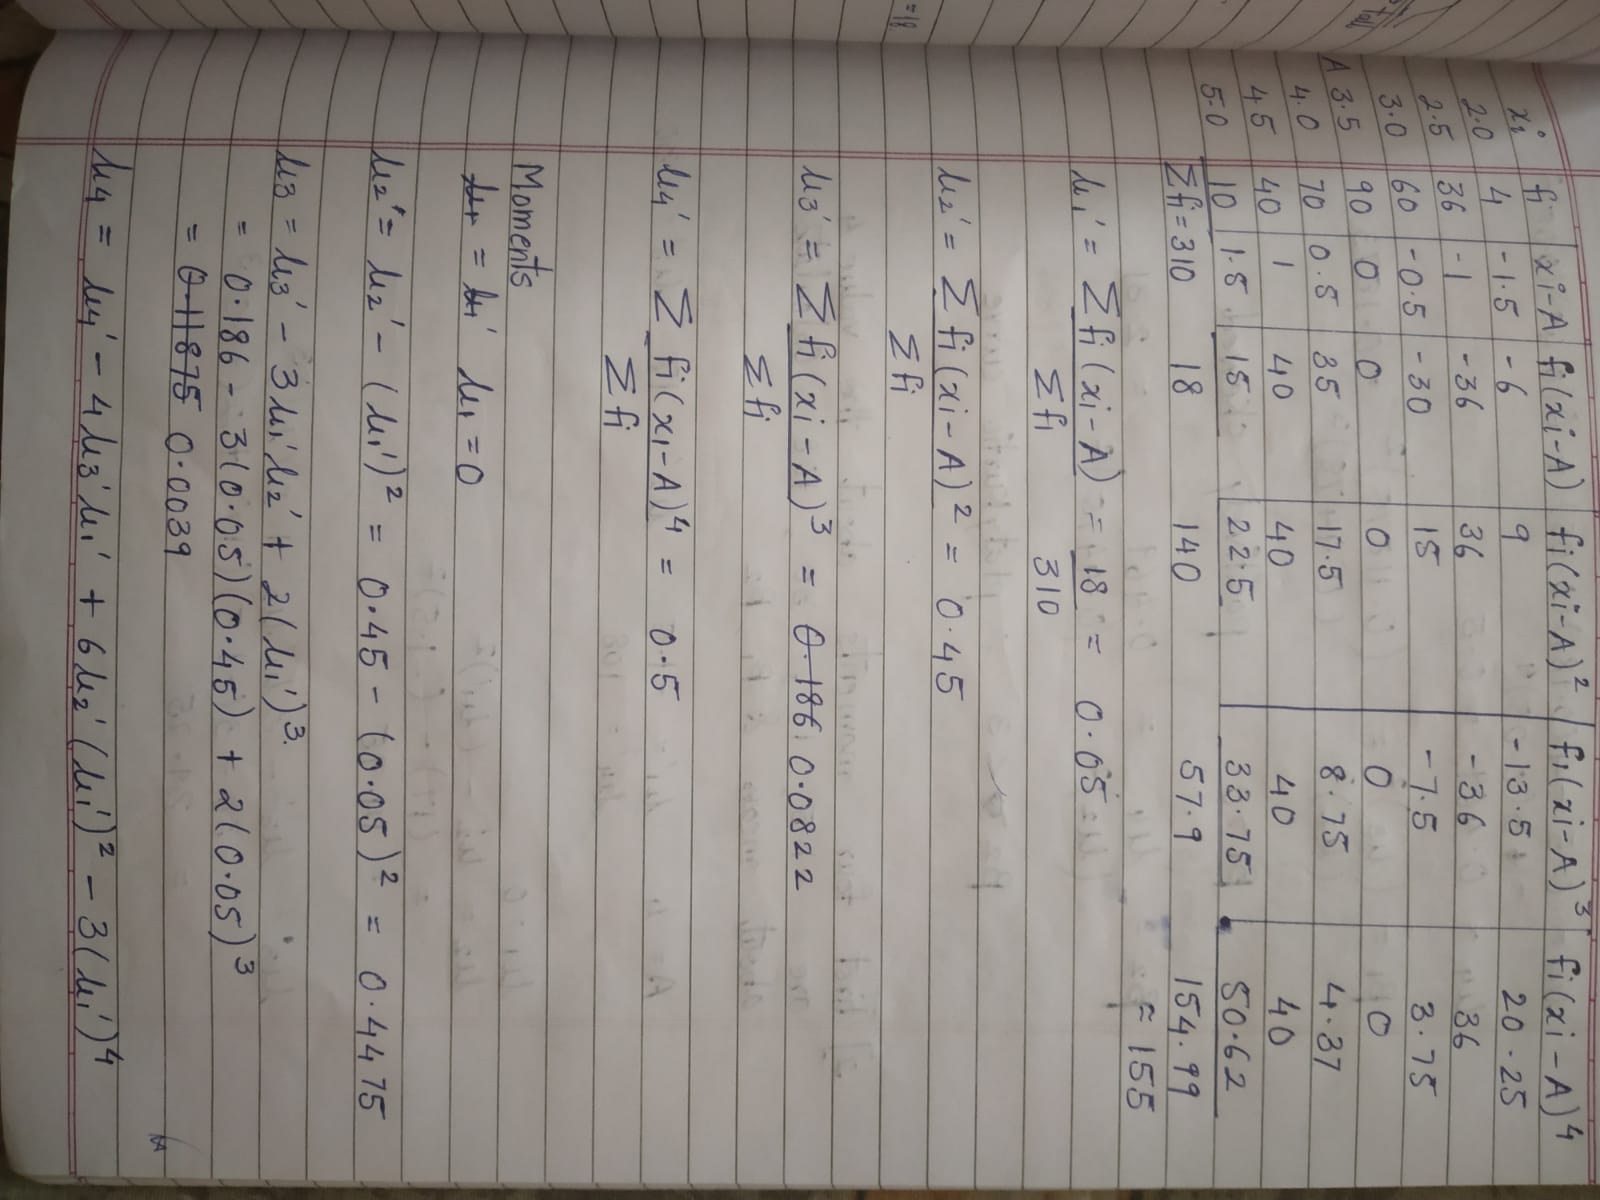 xi fi xi-A fi(xi-A) fi(xi-A)² fi(xi-A)³ fi(xi-A)⁴
2.0 4 -1.5 -6 9 -13.5 20.25
2.5 36 -1 -36 36 -36 36
3.0 60 -0.5 -30 15 -7.5 3.75
A 3.5 90 0 0 0 0 0
4.0 70 0.5 35 17.5 8.75 4.37
4.5 40 1 40 40 40 40
5.0 10 1.5 15 22.5 33.75 50.62
Σfi = 310 18 140 57.9 154.99
≈ 155
μ1' = Σfi(xi-A) = 18 = 0.05
Σfi 310
μ2' = Σfi(xi-A)² = 0.45
Σfi
μ3' = Σfi(xi-A)³ = 0.186 0.0822
Σfi
μ4' = Σ fi(xi-A)⁴ = 0.5
Σfi
=18.
Moments
μ1 = μ1' μ1 = 0
μ2' = μ2' - (μ1')² = 0.45 - (0.05)² = 0.4475
μ3 = μ3' - 3μ1'μ2' + 2(μ1')³.
= 0.186 - 3(0.05)(0.45) + 2(0.05)³
= 0.11875 0.0039
μ4 = μ4' - 4μ3'μ1' + 6μ2'(μ1')² - 3(μ1')⁴